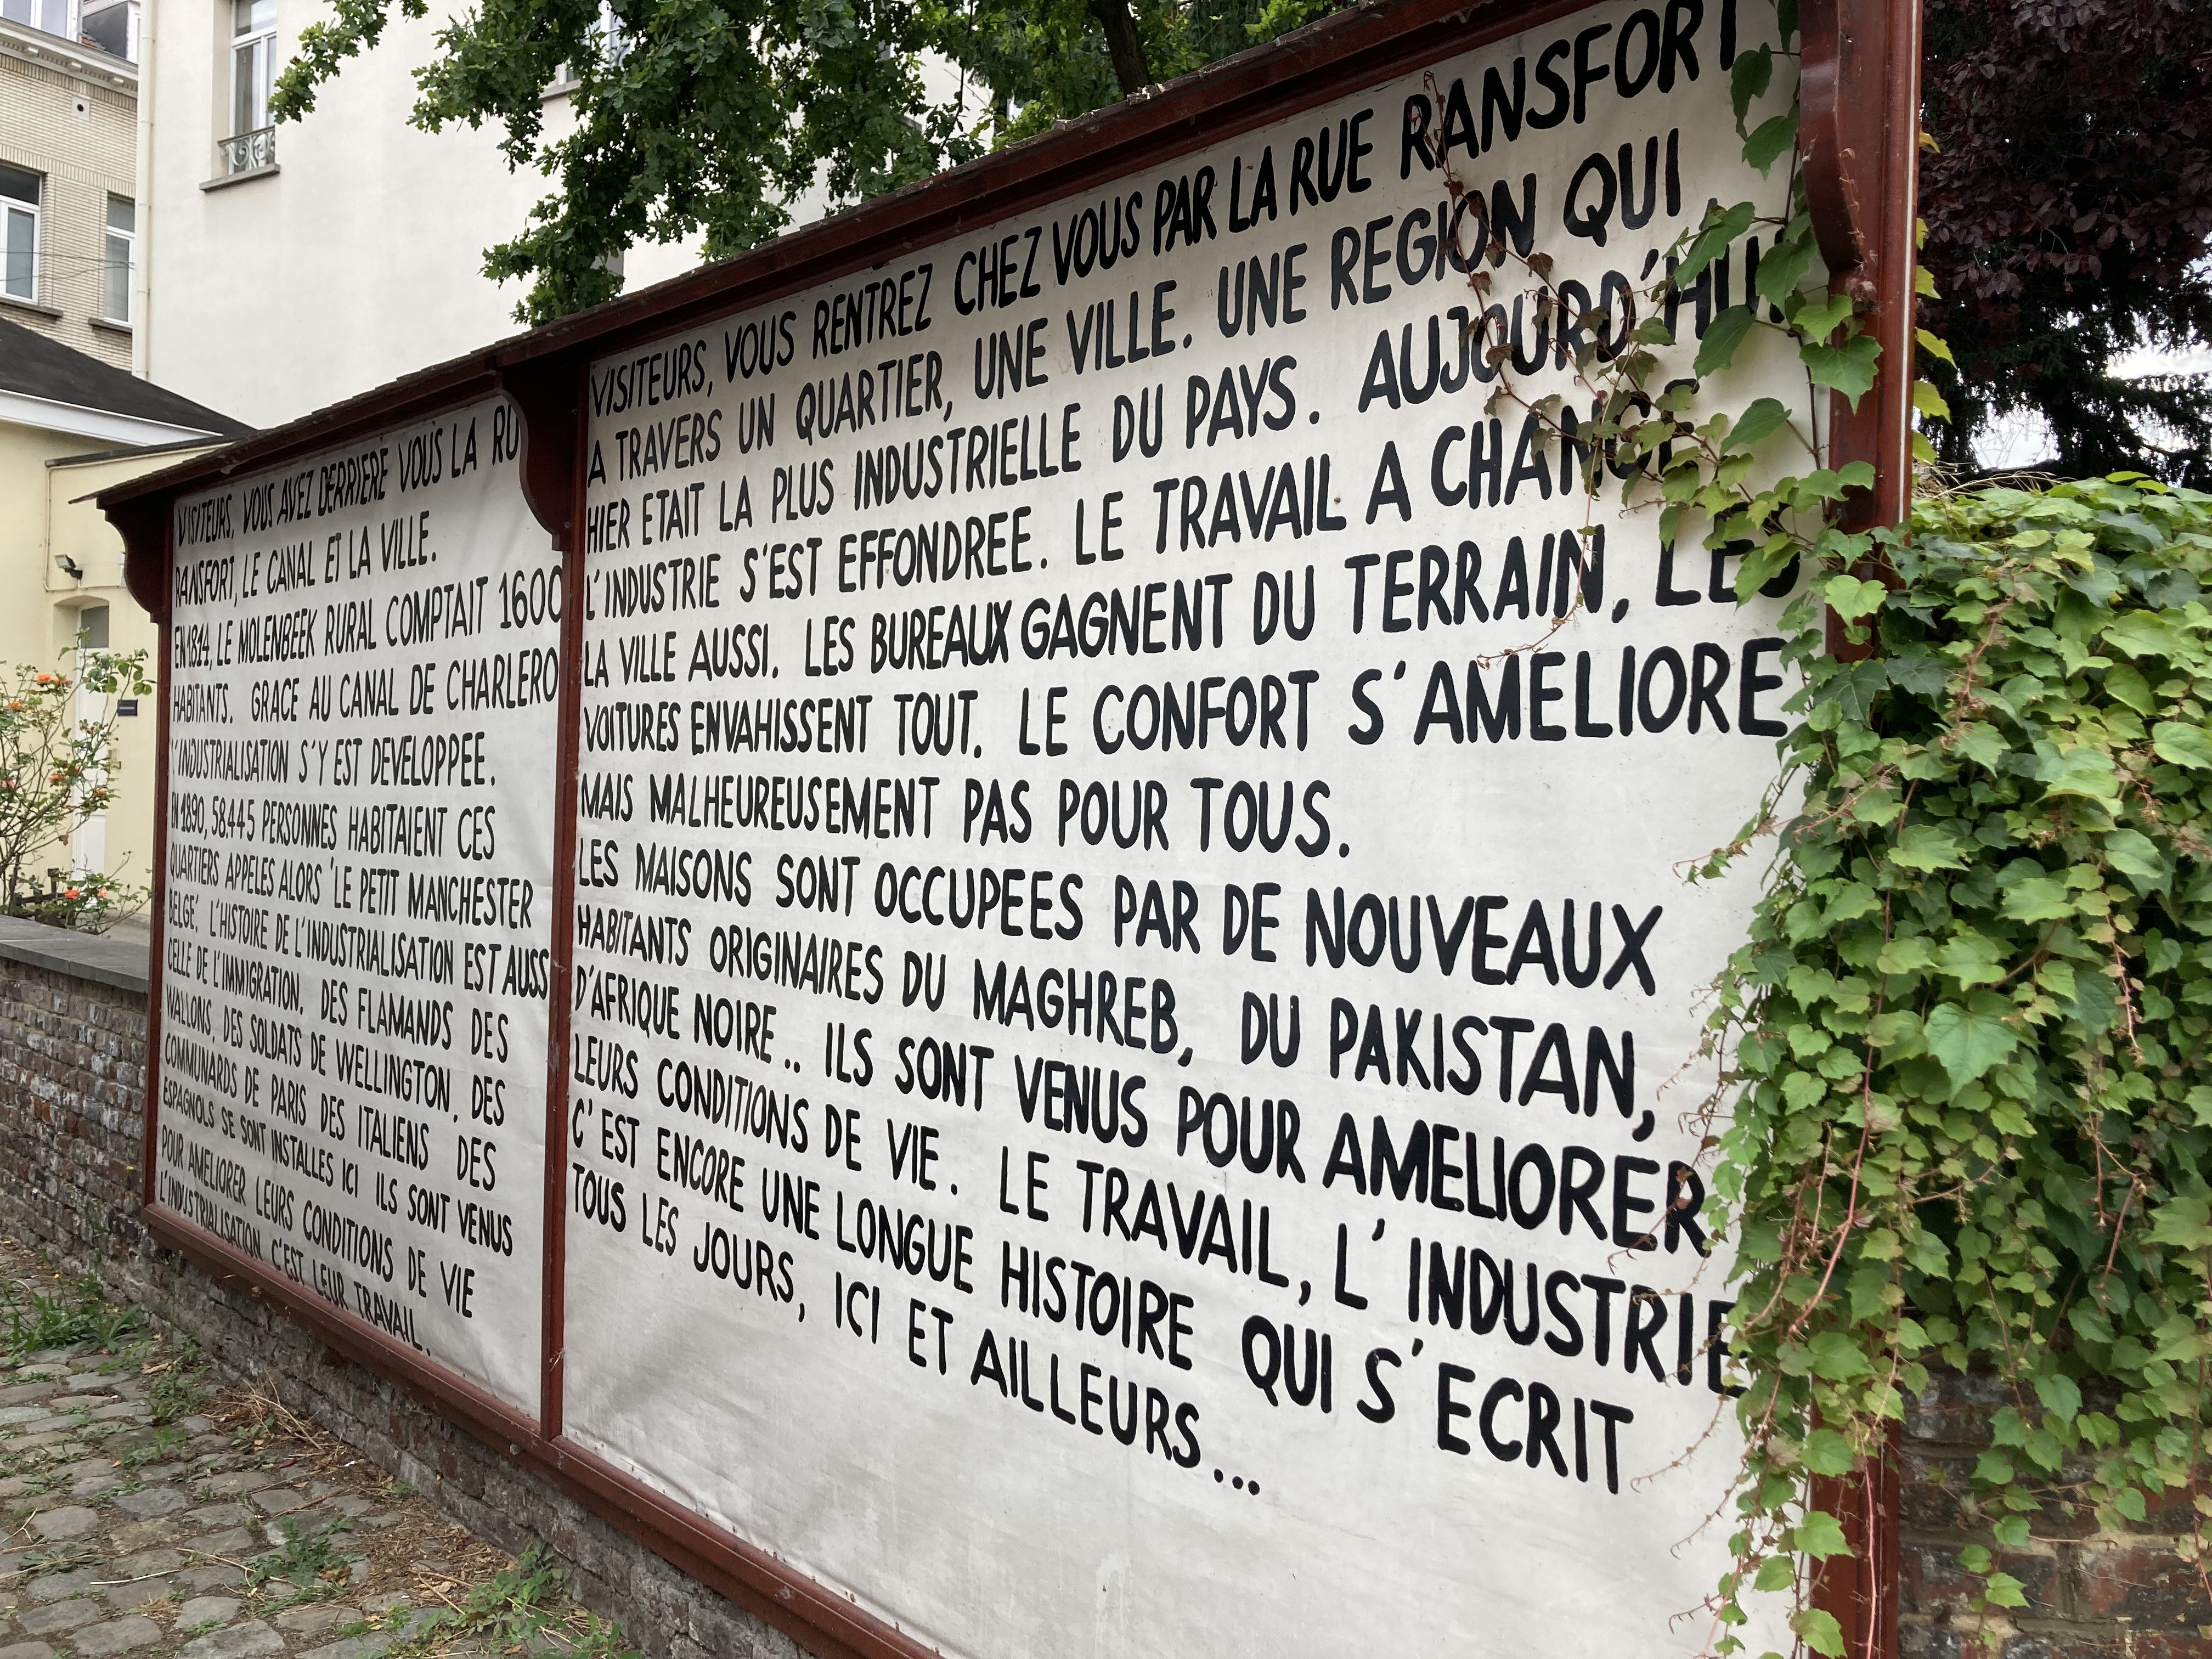 VISITEURS, VOUS AVEZ DERRIERE VOUS LA RU
RANSFORT, LE CANAL ET LA VILLE.
EN 1814, LE MOLENBEEK RURAL COMPTAIT 1600
HABITANTS. GRACE AU CANAL DE CHARLERO
L'INDUSTRIALISATION S'Y EST DEVELOPPEE.
EN 1890, 58.445 PERSONNES HABITAIENT CES
QUARTIERS APPELES ALORS 'LE PETIT MANCHESTER
BELGE'. L'HISTOIRE DE L'INDUSTRIALISATION EST AUSS
CELLE DE L'IMMIGRATION. DES FLAMANDS DES
WALLONS, DES SOLDATS DE WELLINGTON, DES
COMMUNARDS DE PARIS DES ITALIENS DES
ESPAGNOLS SE SONT INSTALLES ICI ILS SONT VENUS
POUR AMELIORER LEURS CONDITIONS DE VIE
L'INDUSTRIALISATION C'EST LEUR TRAVAIL.
VISITEURS, VOUS RENTREZ CHEZ VOUS PAR LA RUE RANSFORT
A TRAVERS UN QUARTIER, UNE VILLE. UNE REGION QUI,
HIER ETAIT LA PLUS INDUSTRIELLE DU PAYS. AUJOURD'HUI
L'INDUSTRIE S'EST EFFONDREE. LE TRAVAIL A CHANGE
LA VILLE AUSSI. LES BUREAUX GAGNENT DU TERRAIN, LES
VOITURES ENVAHISSENT TOUT. LE CONFORT S'AMELIORE
MAIS MALHEUREUSEMENT PAS POUR TOUS.
LES MAISONS SONT OCCUPEES PAR DE NOUVEAUX
HABITANTS ORIGINAIRES DU MAGHREB, DU PAKISTAN,
D'AFRIQUE NOIRE.. ILS SONT VENUS POUR AMELIORER
LEURS CONDITIONS DE VIE. LE TRAVAIL, L'INDUSTRIE
C'EST ENCORE UNE LONGUE HISTOIRE QUI S'ECRIT
TOUS LES JOURS, ICI ET AILLEURS...